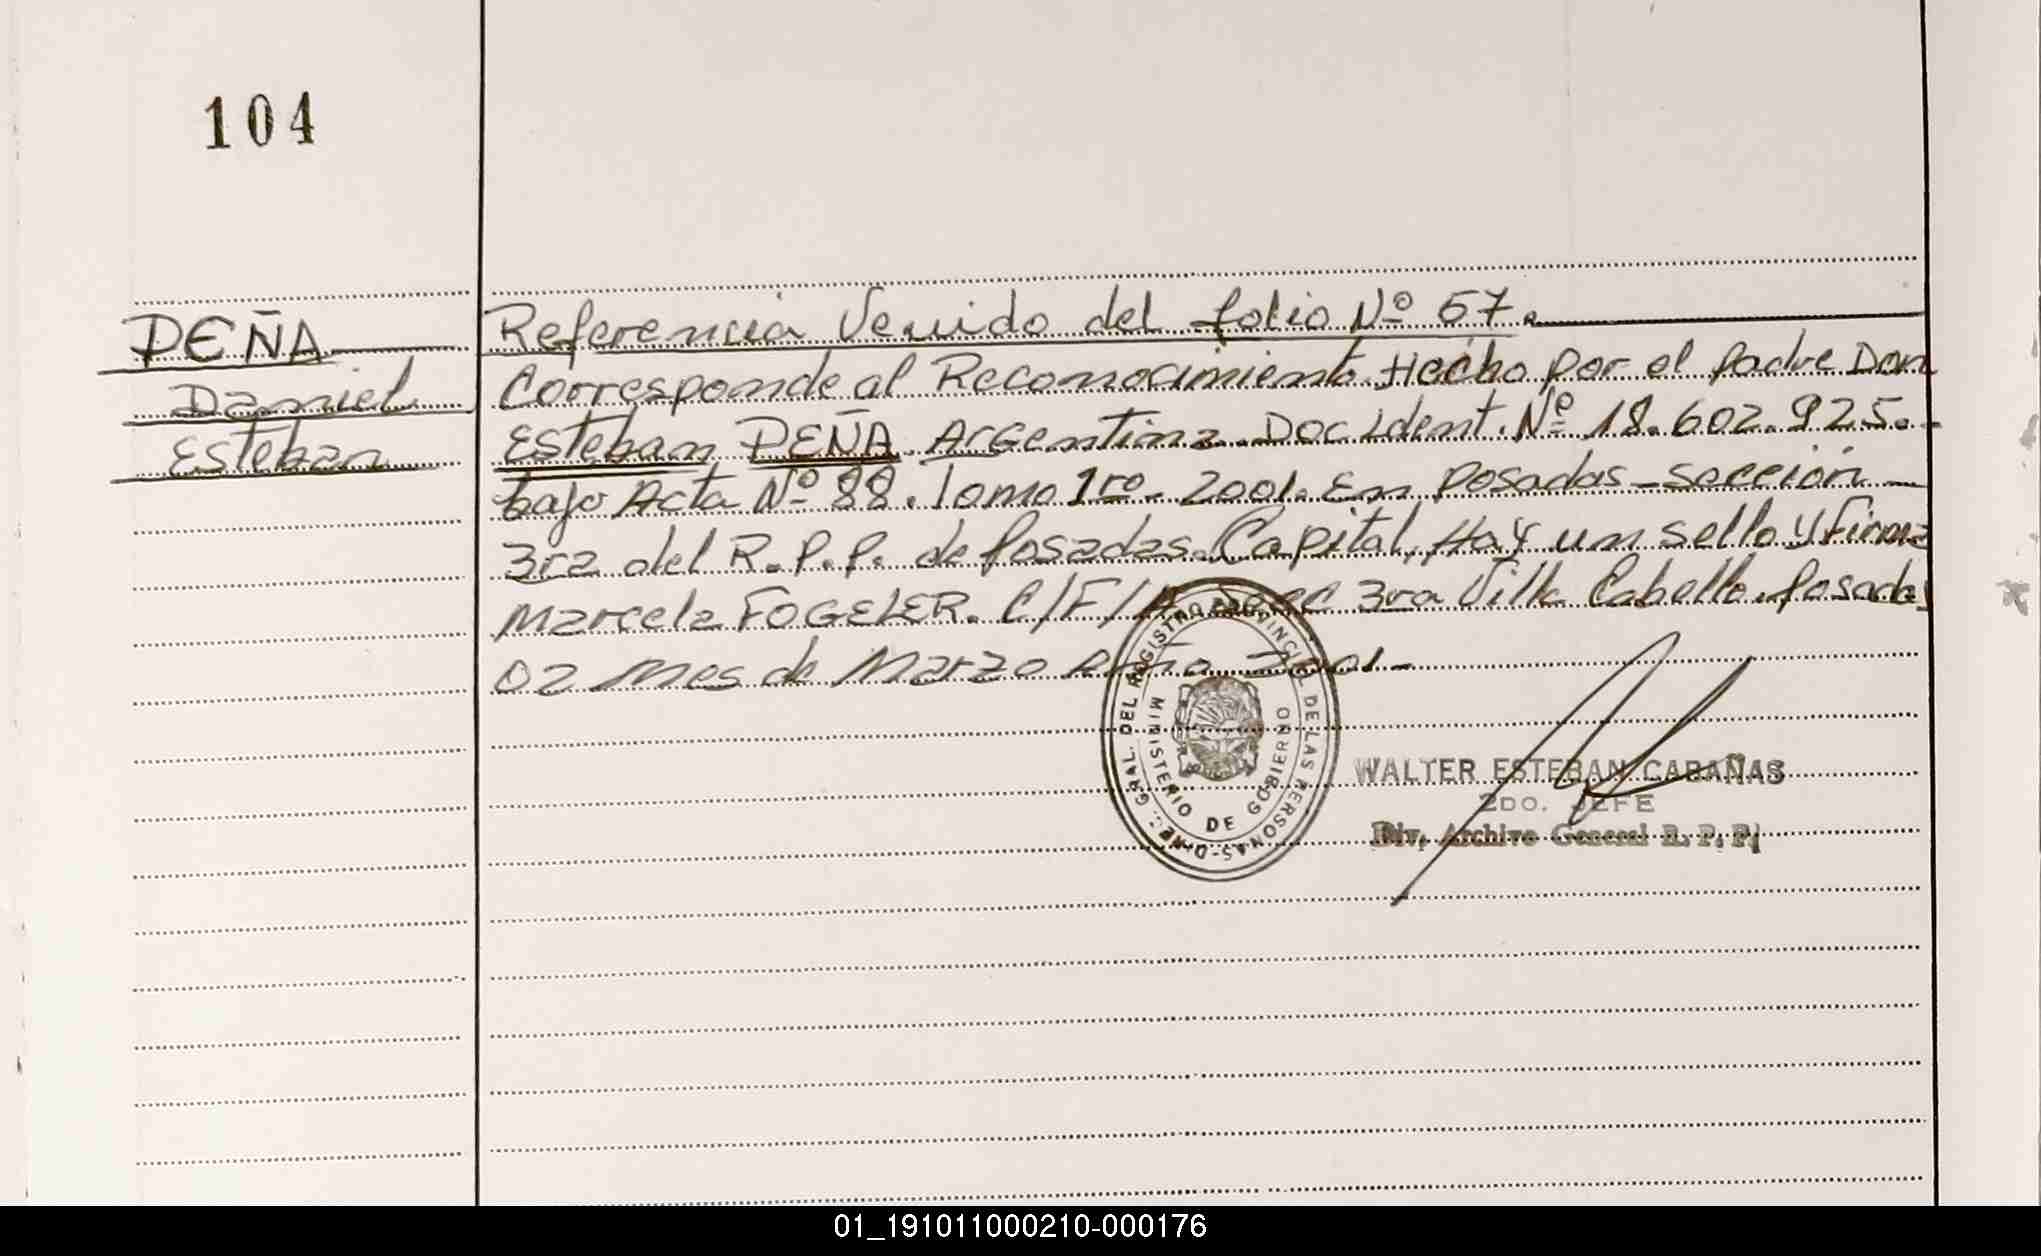 104
PEÑA
Daniel
Esteban
Referencia Venido del folio Nº 67.
Corresponde al Reconocimiento Hecho por el padre Don
Esteban PEÑA. Argentina. Doc Ident. Nº 18.602.925.-
bajo Acta Nº 88. Tomo 1ro. 2001. En Posadas - sección
3ra del R.P.P. de Posadas. Capital, Hay un sello y firma
Marcela FOGELER. C/F/A 3ra Villa Cabello. Posadas
02 mes de Marzo Año 2001.-
DIREC. GRAL. DEL REGISTRO PROVINCIAL DE LAS PERSONAS
MINISTERIO DE GOBIERNO
WALTER ESTEBAN CABAÑAS
2DO. JEFE
Div. Archivo General R. P. P.
01_191011000210-000176